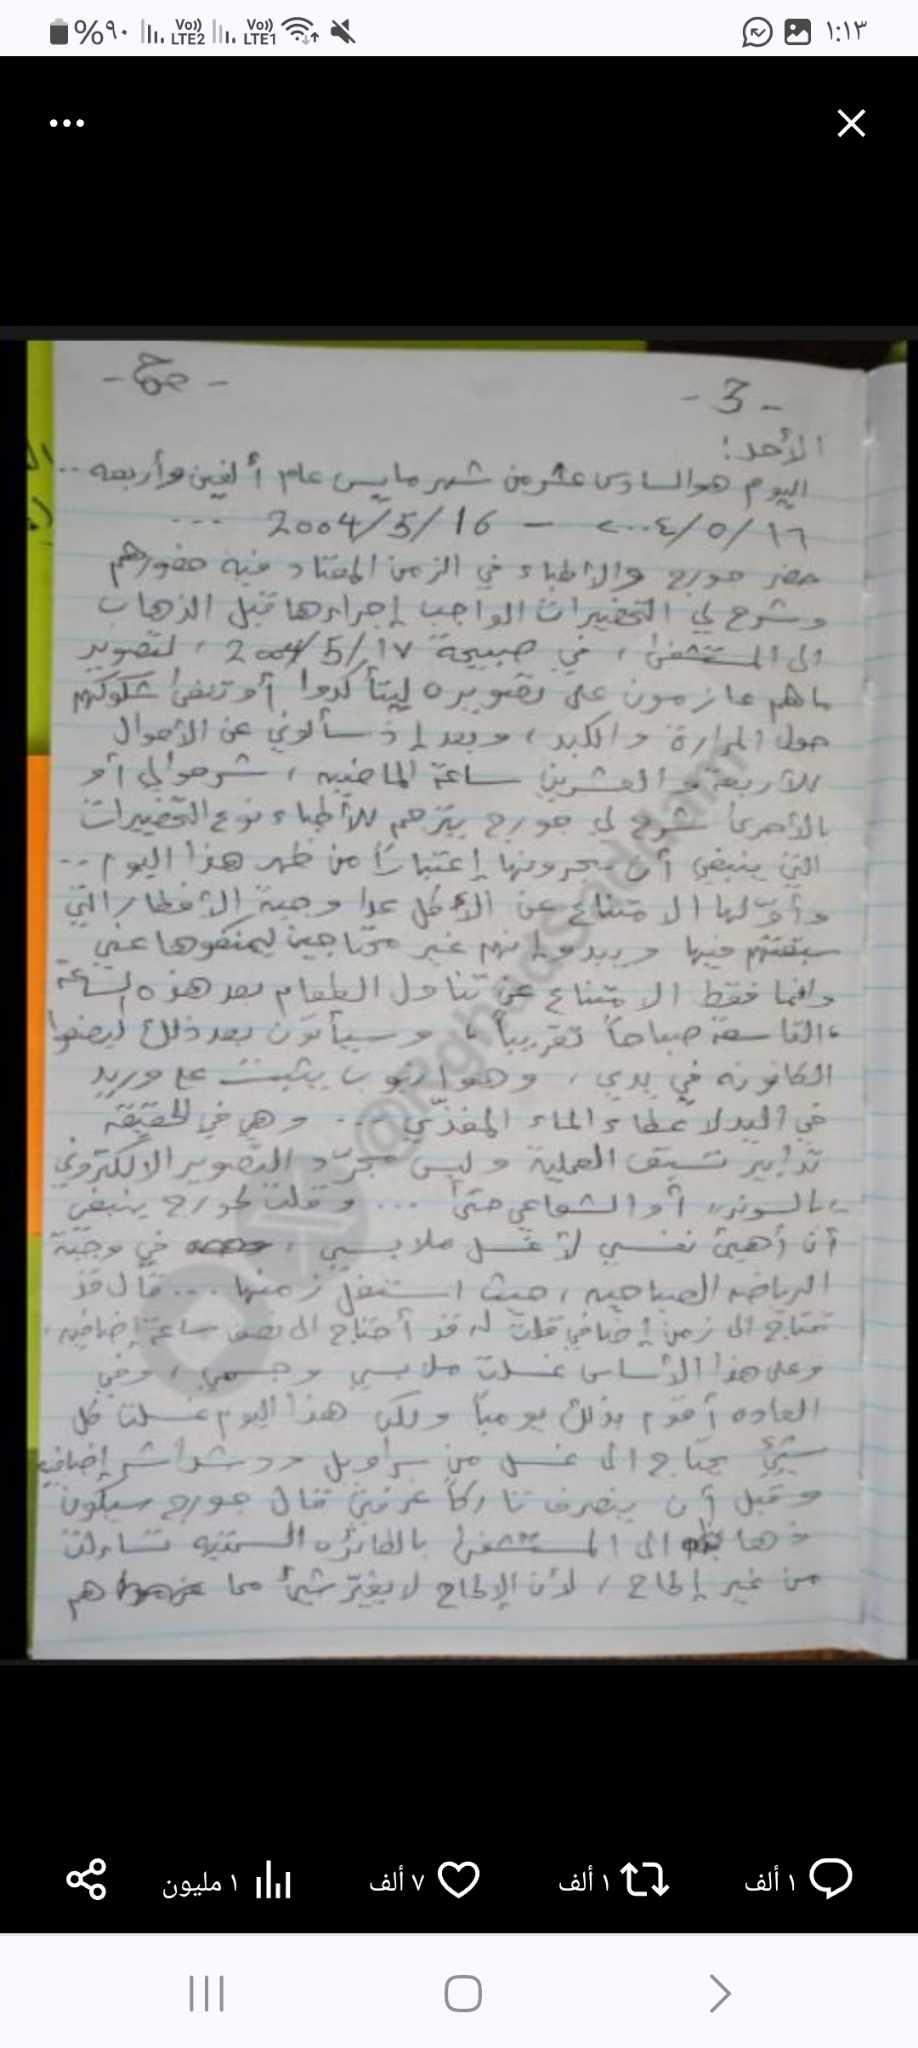 ١:١٣
Vo)) LTE1
Vo)) LTE2
%٩٠
- 3 -
- صح -
الأحد:
اليوم هو السادس عشر من شهر مايس عام ألفين وأربعه ..
١٦/٥/٢٠٠٤ - 2004/5/16 ...
حضر جورج والأطباء في الزمن المعتاد فيه حضورهم
وشرح لي التحضيرات الواجب إجراءها قبل الذهاب
الى المستشفى، في صبيحة ١٧/5/2004، لتصوير
ماهم عازمون على تصويره ليتأكدوا أو تنفى شكوكهم
حول المرارة والكبد، وبعد إذ سألوني عن الأحوال
للأربعة والعشرين ساعة الماضيه، شرحوا لي أو
بالأحرى شرح لي جورج يترجم للأطباء نوع التحضيرات
التي ينبغي أن يجرونها إعتباراً من ظهر هذا اليوم ..
وأولها الامتناع عن الأكل عدا وجبة الأفطار التي
سبقتهم فيها ويبدو انهم غير محتاجين ليمنعوها عني
وانما فقط الامتناع عن تناول الطعام بعد هذه الساعة
التاسعة صباحاً تقريباً، وسيأتون بعد ذلك ليضعوا
الكانونه في يدي، وهو انبوب يثبت مع وريد
في اليد لاعطاء الماء المغذّي ... وهي في الحقيقة
تدابير تسبق العملية وليس مجرّد التصوير الالكتروني
بالسونر، أو الشعاعي حتى ... وقلت لجورج ينبغي
أن أهيئ نفسي لأغسل ملابسي، في وجبة
الرياضه الصباحيه، حيث استغل زمنها ... قال قد
تحتاج الى زمن إضافي قلت له قد أحتاج الى نصف ساعة إضافيه.
وعلى هذا الأساس غسلت ملابسي وجسمي، وفي
العاده أقوم بذلك يومياً ولكن هذا اليوم غسلت كل
شيئ يحتاج الى غسل من سراويل ودشداشة إضافيه
وقبل أن ينصرف تاركاً غرفتي قال جورج سيكون
ذهابك الى المستشفى بالطائره السمتيه تساءلت
من غير إلحاح، لأن الإلحاح لا يغيّر شيئاً مما هم
@RghadSaddam
١ ألف
١ ألف
٧ ألف
١ مليون